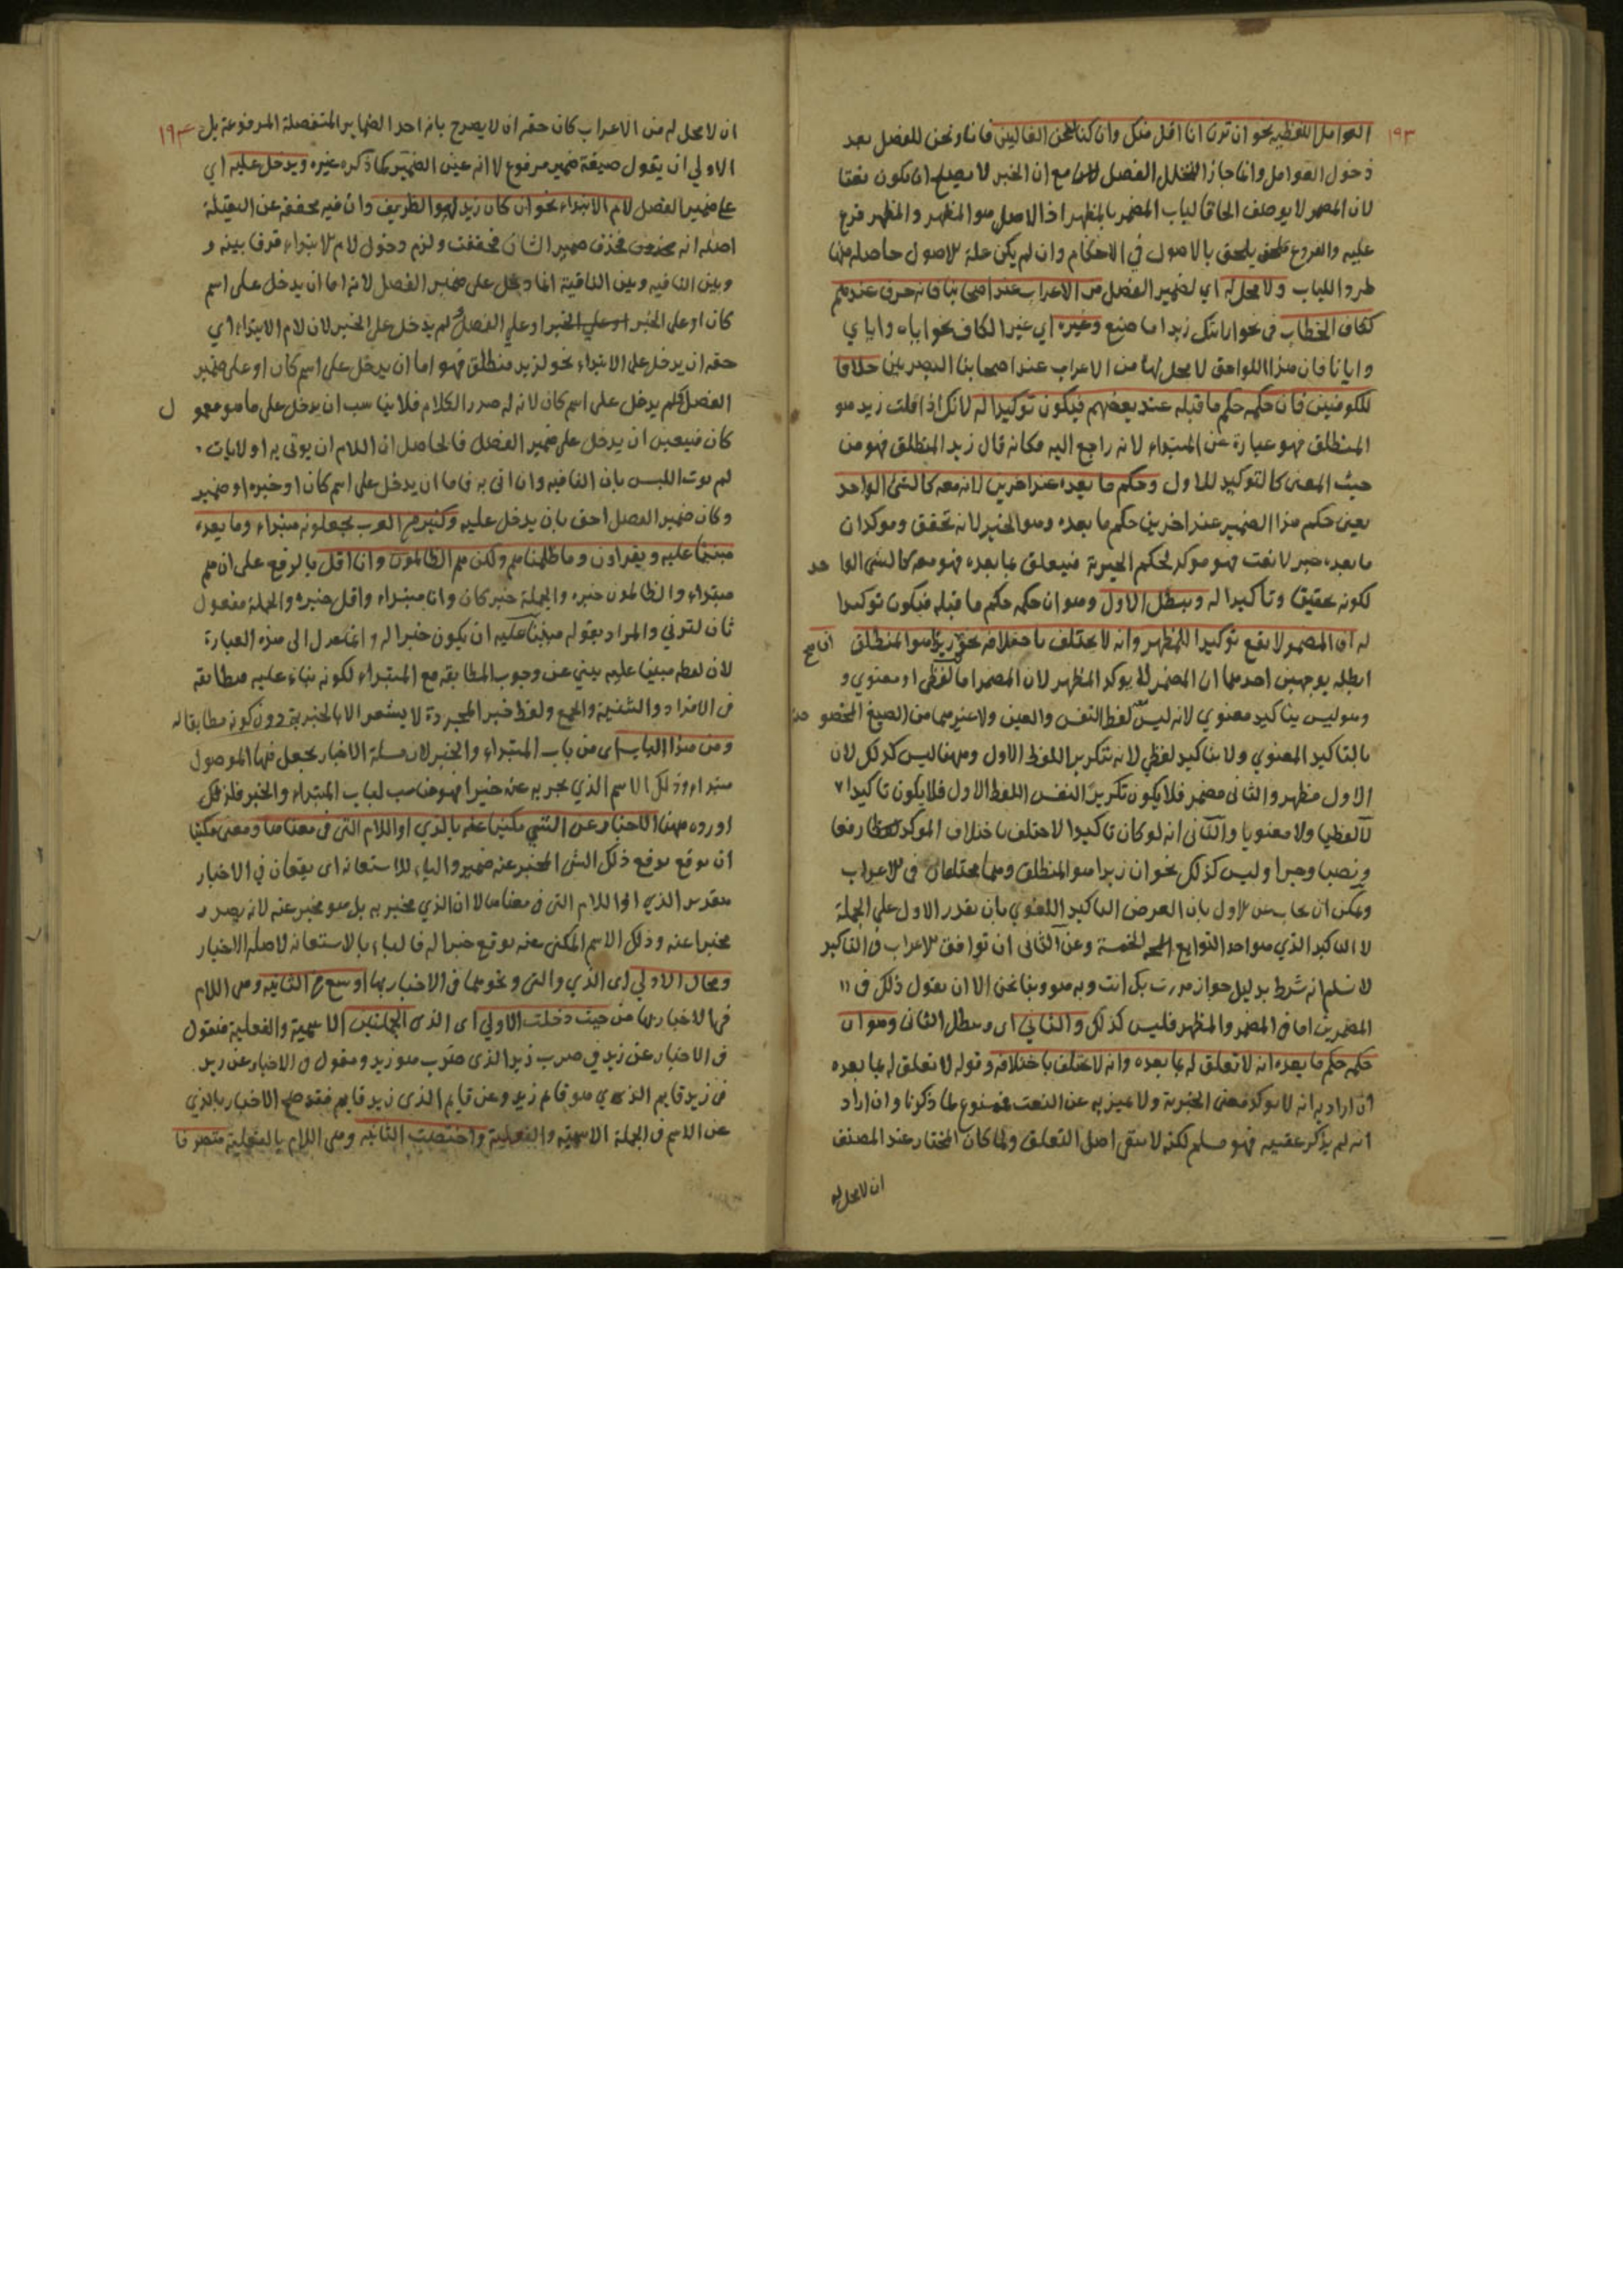 ١٩٣
العوامل اللفظيه نحو ان ترن انا اقل منك وان كنا لنحن الغالبين فانا ونحن للفصل بعد
دخول العوامل وانما جاز تخلل الفصل مع ان الخبر لا يصلح ان يكون نعتا
لان المضمر لا يوصف الحاقا لباب المضمر بالمظهر اذ الاصل هو المظهر والمظهر فرع
عليه والفروع يلحق بالاصول في الاحكام وان لم يكن علة الاصول حاصله منها
طردا للباب ولا محل له اي لضمير الفصل من الاعراب عند اصحابنا فانه حرف عندهم
ككاف الخطاب في نحو ارايتك زيدا ما صنع وغيره اي غير الكاف نحو اياه واياي
وايانا فان هذا اللواحق لا محل لها من الاعراب عند اصحابنا البصريين خلافا
للكوفيين فان حكمه حكم ما قبله عند بعضهم فيكون توكيدا له لانك اذا قلت زيد هو
المنطلق فهو عبارة عن المبتداء لانه راجع اليه فكانه قال زيد المنطلق فهو من
حيث المعنى كالتوكيد للاول وحكم ما بعده عند اخرين لانه معه كالشئ الواحد
يعنى حكم هذا الضمير عند اخرين حكم ما بعده وهو الخبر لانه تحقق وموكد ان
ما بعده خبر لا نعت فهو موكد لحكم الخبرية فيتعلق بما بعده فهو معه كالشئ الواحد
لكونه تحقيقا وتاكيدا له ويبطل الاول وهو ان حكمه حكم ما قبله فيكون توكيدا
له ان المضمر لا يقع توكيدا للمظهر وانه لا يختلف باختلافه نحو ان زيدا هو المنطلق
ابطله بوجهين احدهما ان المضمر لا يوكد المظهر لان المضمر اما لفظى او معنوي و
وهو ليس بتاكيد معنوي لانه ليس لفظ النفس والعين ولا غيرهما من الصيغ المخصوصة
بالتاكيد المعنوي ولا بتاكيد لفظي لانه بتكرير اللفظ الاول وههنا ليس كذلك لان
الاول مظهر والثانى مضمر فلا يكون تكرير النفس اللفظ الاول فلا يكون تاكيدا
لا لفظيا ولا معنويا والثانى انه لو كان تاكيدا لاختلف باختلاف الموكد رفعا
ونصبا وجرا وليس كذلك نحو ان زيدا هو المنطلق وهما مختلفان في الاعراب
ويمكن ان يجاب عن الاول بان الغرض التاكيد اللغوي بان يقدر الاول على الجملة
لا التاكيد الذي هو احد التوابع الخمسة وعن الثانى ان توافق الاعراب في التاكيد
لا نسلم انه شرط بدليل جواز مررت بك انت وبه هو وبنا نحن الا ان نقول ذلك في
المضمرين اما في المضمر والمظهر فليس كذلك والثاني اى ويبطل الثاني وهو ان
حكمه حكم ما بعده انه لا تعلق له بما بعده وانه لا يختلف باختلافه وقوله لا تعلق له بما بعده
ان اراد به انه لا يوكد معنى الخبرية ولا يميز به عن النعت فممنوع لما ذكرنا وان اراد
انه لم يذكر عقيبه فهو مسلم لكنه لا ينفى اصل التعلق ولما كان المختار عند المصنف
ان لا محل له
١٩٤
ان لا محل له من الاعراب كان حقه ان لا يصرح بانه احد الضماير المنفصلة المرفوعة بل
الاولي ان يقول صيغة ضمير مرفوع لا انه عين الضمير كما ذكره غيره ويدخل عليه اي
على ضمير الفصل لام الابتداء نحو ان كان زيد لهو الظريف وان فيه مخففة عن الثقيلة
اصله انه محذوف فحذف ضمير الشان فخففت ولزم دخول لام الابتداء فرقا بينه و
وبين النافيه وبين النافية انما دخل على ضمير الفصل لانه اما ان يدخل على اسم
كان او على الخبر او على الخبر او على الفصل ولم يدخل على الخبر لان لام الابتداء اي
حقه ان يدخل على الابتداء نحو لزيد منطلق فهو اما ان يدخل على اسم كان او على ضمير
الفصل فلم يدخل على اسم كان لانه له صدر الكلام فلا يناسب ان يدخل على ما هو معمول
كان فتعين ان يدخل على ضمير الفصل فالحاصل ان اللام ان يوتى به او لا يات
لم يوت اللبس بان النافيه وان اتى به فاما ان يدخل على اسم كان او خبره او ضمير
وكان ضمير الفصل احق بان يدخل عليه وكثير من العرب يجعلونه مبتداء وما بعده
مبنيا عليه ويقراون وما ظلمناهم ولكن هم الظالمون وان انا اقل بالرفع على ان هم
مبتداء والظالمون خبره والجملة خبر كان وانا مبتداء واقل خبره والجملة مفعول
ثان لترني والمراد بقوله مبنيا عليه ان يكون خبرا له وانما عدل الى هذه العبارة
لان لفظ مبنيا عليه يبني عن وجوب المطابقه مع المبتداء لكونه بناء عليه مطابقه
في الافراد والتثنية والجمع ولفظ خبر المجردة لا يشعر الا بالخبرية دون كونه مطابقا له
ومن هذا الباب اى من باب المبتداء والخبر لان مسلة الاخبار يجعل فيها الموصول
مبتداء وذلك الاسم الذي يخبر به عنه خبرا فهو مناسب لباب المبتداء والخبر فلذلك
اورده ههنا الاخبار عن الشئ مكنيا عنه بالذي او اللام التى في معناها ومعنى مكنيا
ان يوقع موقع ذلك الشئ المخبر عنه ضمير والباء للاستعانه اى يقعان في الاخبار
بتقدير الذي او اللام التى في معناها لا ان الذي مخبر به بل هو مخبر عنه لانه يصدر
مخبرا عنه وذلك الاسم المكنى عنه يوقع خبرا له فالباء بالاستعانه لا صله الاخبار
ومجال الاولي اى الذي والتى ونحوهما في الاخبار بها اوسع من الثانيه وهى اللام
في الاخبار بها من حيث دخلت الاولي اى الذى الجملتين الاسمية والفعلية فتقول
في الاخبار عن زيد في ضرب زيد الذى ضرب هو زيد وتقول في الاخبار عن زيد
في زيد قايم الذي هو قايم زيد وعن قايم الذى زيد قايم فقد صح الاخبار بالذي
عن الاسم في الجملة الاسميه والفعلية واختصت الثانيه وهى اللام بالفعلية متصرفا